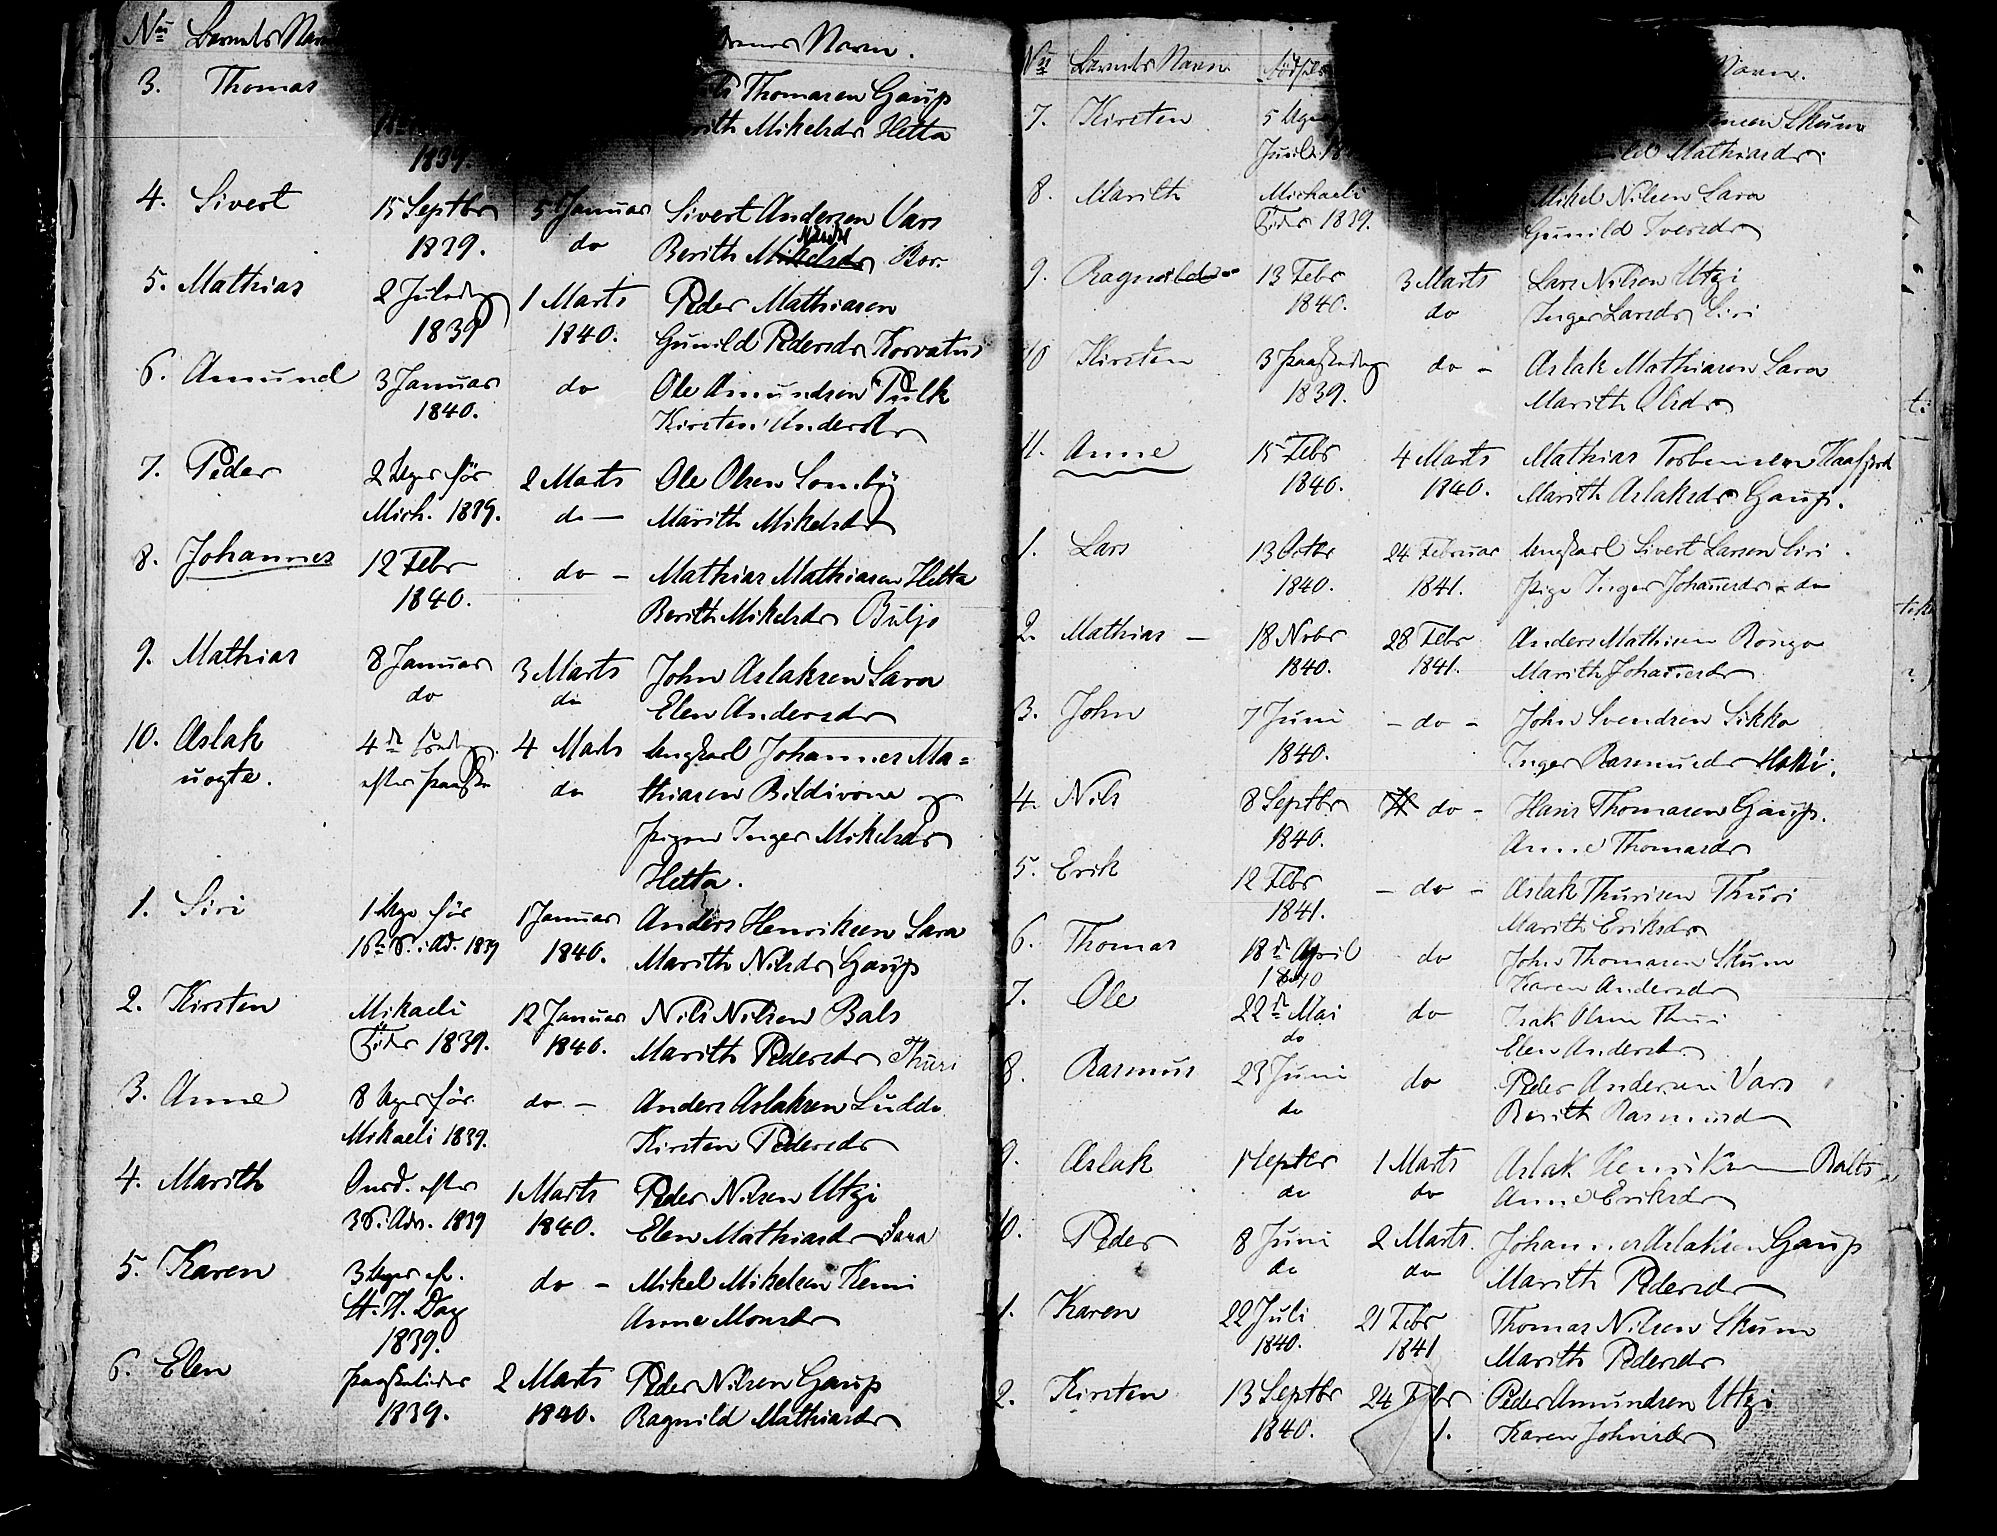 No Barnets Navn
Navn.
3. Thomas
Thomasen Gaup
Mikelsdr Hetta
1839.
4. Sivert 15 Septbr 5 Januar Sivert Andersen Vars
1839. do Berith Mikelsdr Bor.
5. Mathias 2 Juledag 1 Marts Peder Mathiasen
1839 1840. Gunild Pedersdr Korvatus
6. Amund 3 Januar do Ole Amundsen Pulk
1840. Kirsten Andersdr
7. Peder 2 Uger för 2 Marts Ole Olsen Somby
Mich. 1839. do — Marith Mikelsdr
8. Johannes 12 Febr do — Mathias Mathiasen Hetta
1840. Berith Mikelsdr Buljo
9. Mathias 8 Januar 3 Marts John Aslaksen Sara
do do Elen Andersdr
10. Aslak 4de 4 Marts Ungkarl Johannes Ma=
uegte. efter Paaske do thiasen Bildivone og
pigen Inger Mikelsdr
Hetta.
1. Siri 1 Uge för 1 Januar Anders Henriksen Sara
1839 1840. Marith Nilsdr Gaup
2. Kirsten Mikaeli 12 Januar Nils Nilsen Bals
Tider 1839. 1840. Marith Pedersdr Thuri
3. Anne 8 Uger för do — Anders Aslaksen Ludde
Mikaeli 1839. Kirsten Pedersdr
4. Marith Onsd. efter 1 Marts Peder Nilsen Utzi
3 S. Adv. 1839 1840. Elen Mathiasdr Sara
5. Karen 3 Uger ef. do — Mikel Mikelsen Kemi
St. H. Dag Anne Monsdr
1839.
6. Elen Paasketider 2 Marts Peder Nilsen Gaup
1839. 1840. Ragnild Mathiasdr
No Barnets Navn Födsels
Navn.
7. Kirsten 5 Uger Skum
Mathiasdr
8. Marith Michaeli Mikel Nilsen Sara
Tider 1839. Gunild Iversdr
9. Ragnild 13 Febr 3 Marts Lars Nilsen Utzi
1840. do Inger Larsdr Siri
10 Kirsten 3 Paaskedag do — Aslak Mathiasen Sara
1839. Marith Olsdr
11. Anne 15 Febr 4 Marts Mathias Torbensen Kaafjord
1840. 1840. Marith Aslaksdr Gaup.
1. Lars 13 Octbr 24 Februar Ungkarl Sivert Larsen Siri
1840. 1841. pige Inger Johannesdr do
2. Mathias — 18 Novbr 28 Febr Anders Mathisen Rongo
1840. 1841. Marith Johannesdr
3. John 7 Juni — do — John Svendsen Sikko
1840. Inger Rasmusdr
4. Nils 8 Septbr do — Hans Thomasen Gaup.
1840. Anne Thomasdr
5. Erik 12 Febr — do — Aslak Thurisen Thuri
1841. Marith Eriksdr
6. Thomas 18de April do John Thomasen Skum
1840 Karen Andersdr
7. Ole 22de Mai do Isak Olsen Thuri
do Elen Andersdr
8. Rasmus 23 Juni do Peder Andersen Vars
do Berith Rasmusdr
9. Aslak 1 Septbr 1 Marts Aslak Henriksen Balto
do do Anne Eriksdr
10. Peder 8 Juni 2 Marts Johannes Aslaksen Gaup
do do Marith Pedersdr
1. Karen 22 Juli 21 Febr Thomas Nilsen Skum
1840. 1841 Marith Pedersdr
2. Kirsten 13 Septbr 24 Febr Peder Amundsen Utzi
1840. 1. Karen Johnsdr